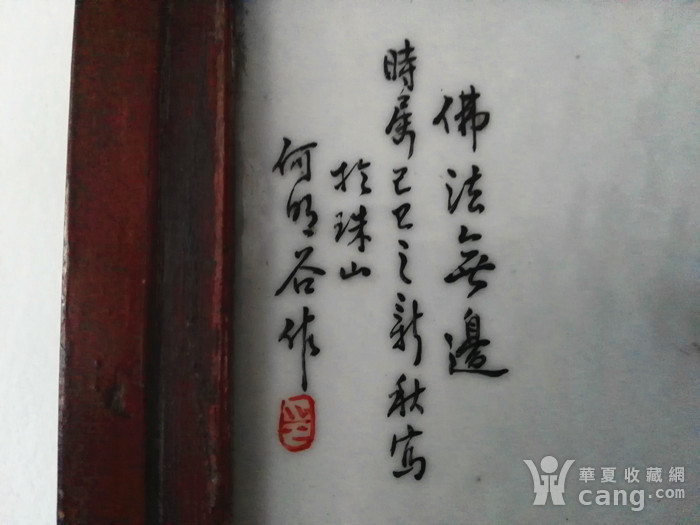 佛法無邊
時属己巳之新秋寫
於珠山
何明谷作
印
華夏收藏網
cang.com